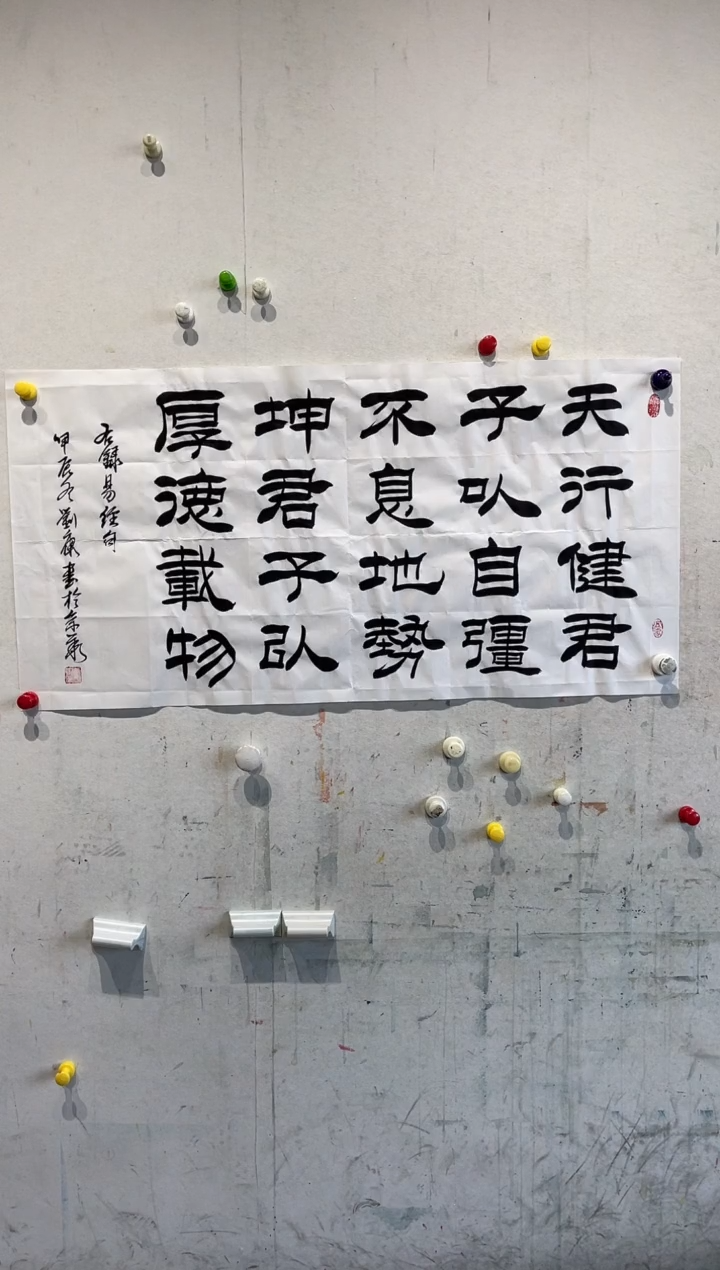 天行健君
子㠯自彊
不息地勢
坤君子㠯
厚德載物
右錄易經句
甲辰冬劉康書於京華